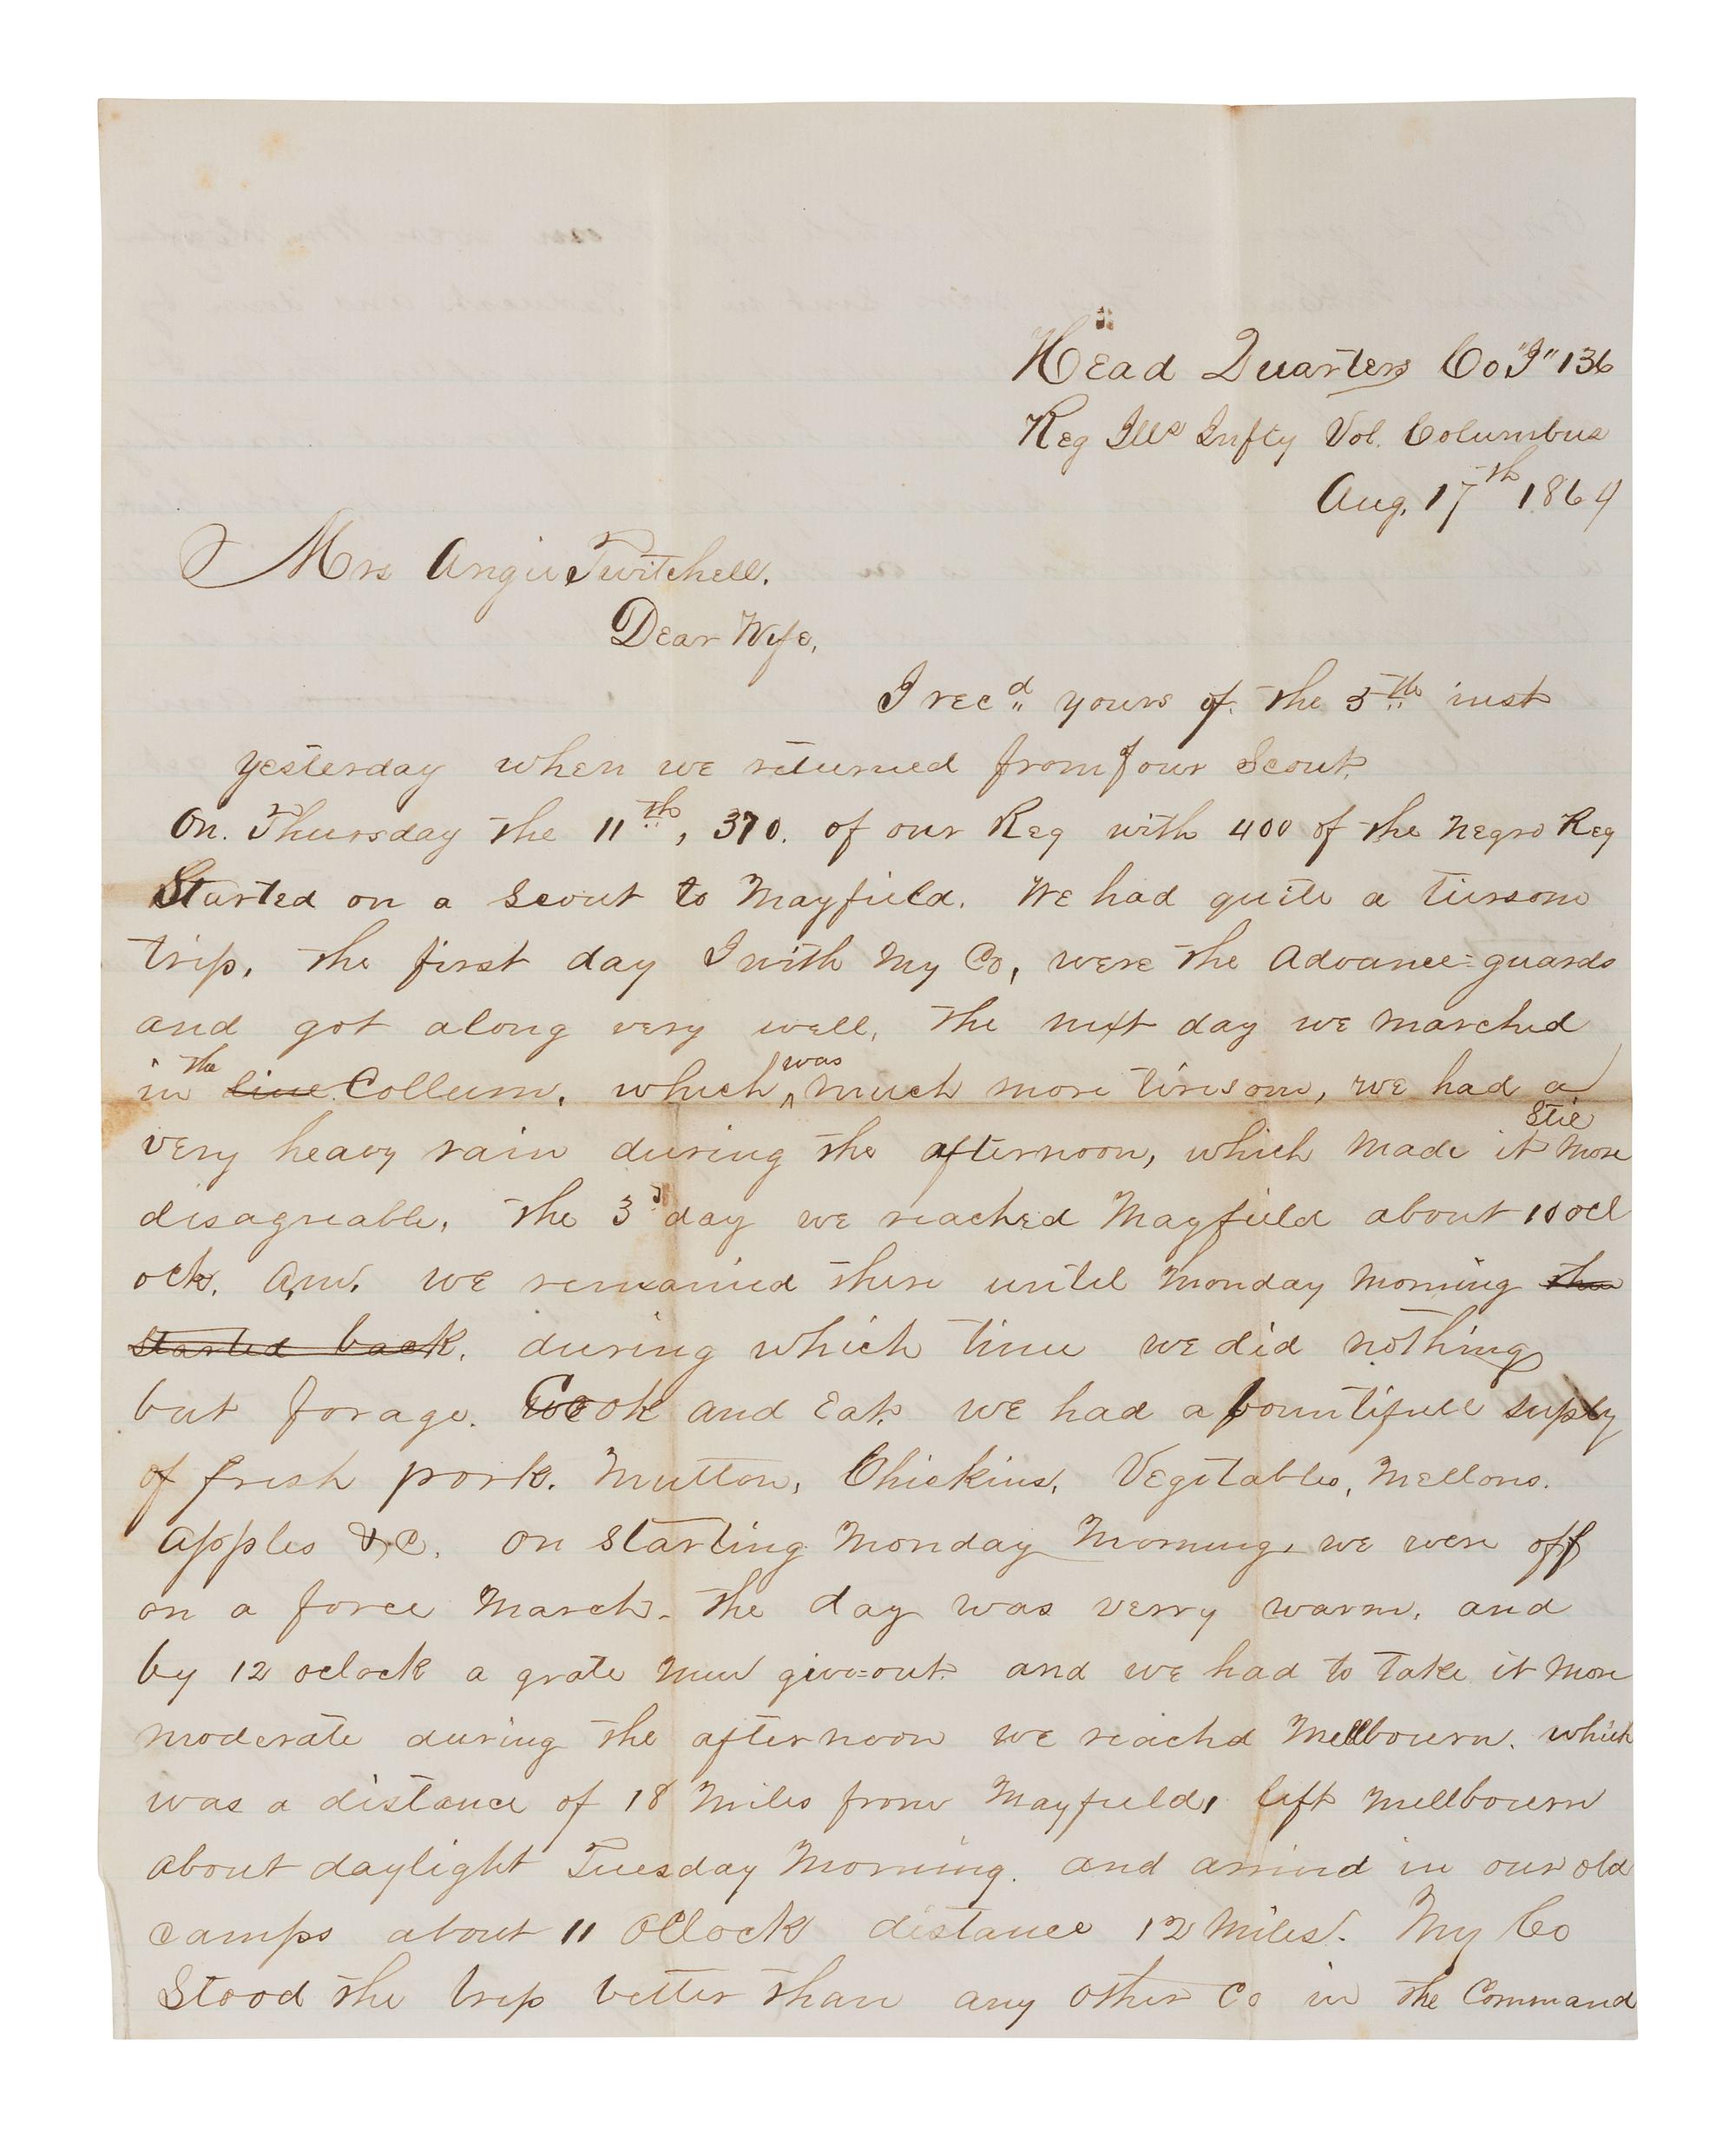 Head Quarters Co "I" 136
Reg Ills Infty Vol. Columbus
Aug. 17th 1864
Mrs Angie Twitchell.
Dear Wife,
I recd yours of the 5th inst
yesterday when we returned from our Scout.
On. Thursday the 11th, 370. of our Reg with 400 of the Negro Reg
Started on a Scout to Mayfield. We had quite a tiersome
trip, the first day I with My Co, were the Advance=guards
and got along very well, the next day we marched
in the line Collum, which was much more tiresom, we had a
very heavy rain during the afternoon, which made it Still More
disagreable, the 3d day we reached Mayfield about 10 ocl
ock. A,M. we remained there until Monday Morning then
started back. during which time we did nothing
but forage. Cook and Eat. we had a bountifull supply
of fresh pork. Mutton, Chickins, Vegitables, Mellons.
Apples &c. on starting Monday Morning, we were off
on a force March. the day was verry warm, and
by 12 oclock a grate Men give=out. and we had to take it More
moderate during the afternoon we reachd Mellbourn. which
was a distance of 18 Miles from Mayfield, left Mellbourn
about daylight Tuesday Morning. and arrived in our old
camps about 11 OClock distance 12 Miles. My Co
Stood the trip better than any other Co in the Command